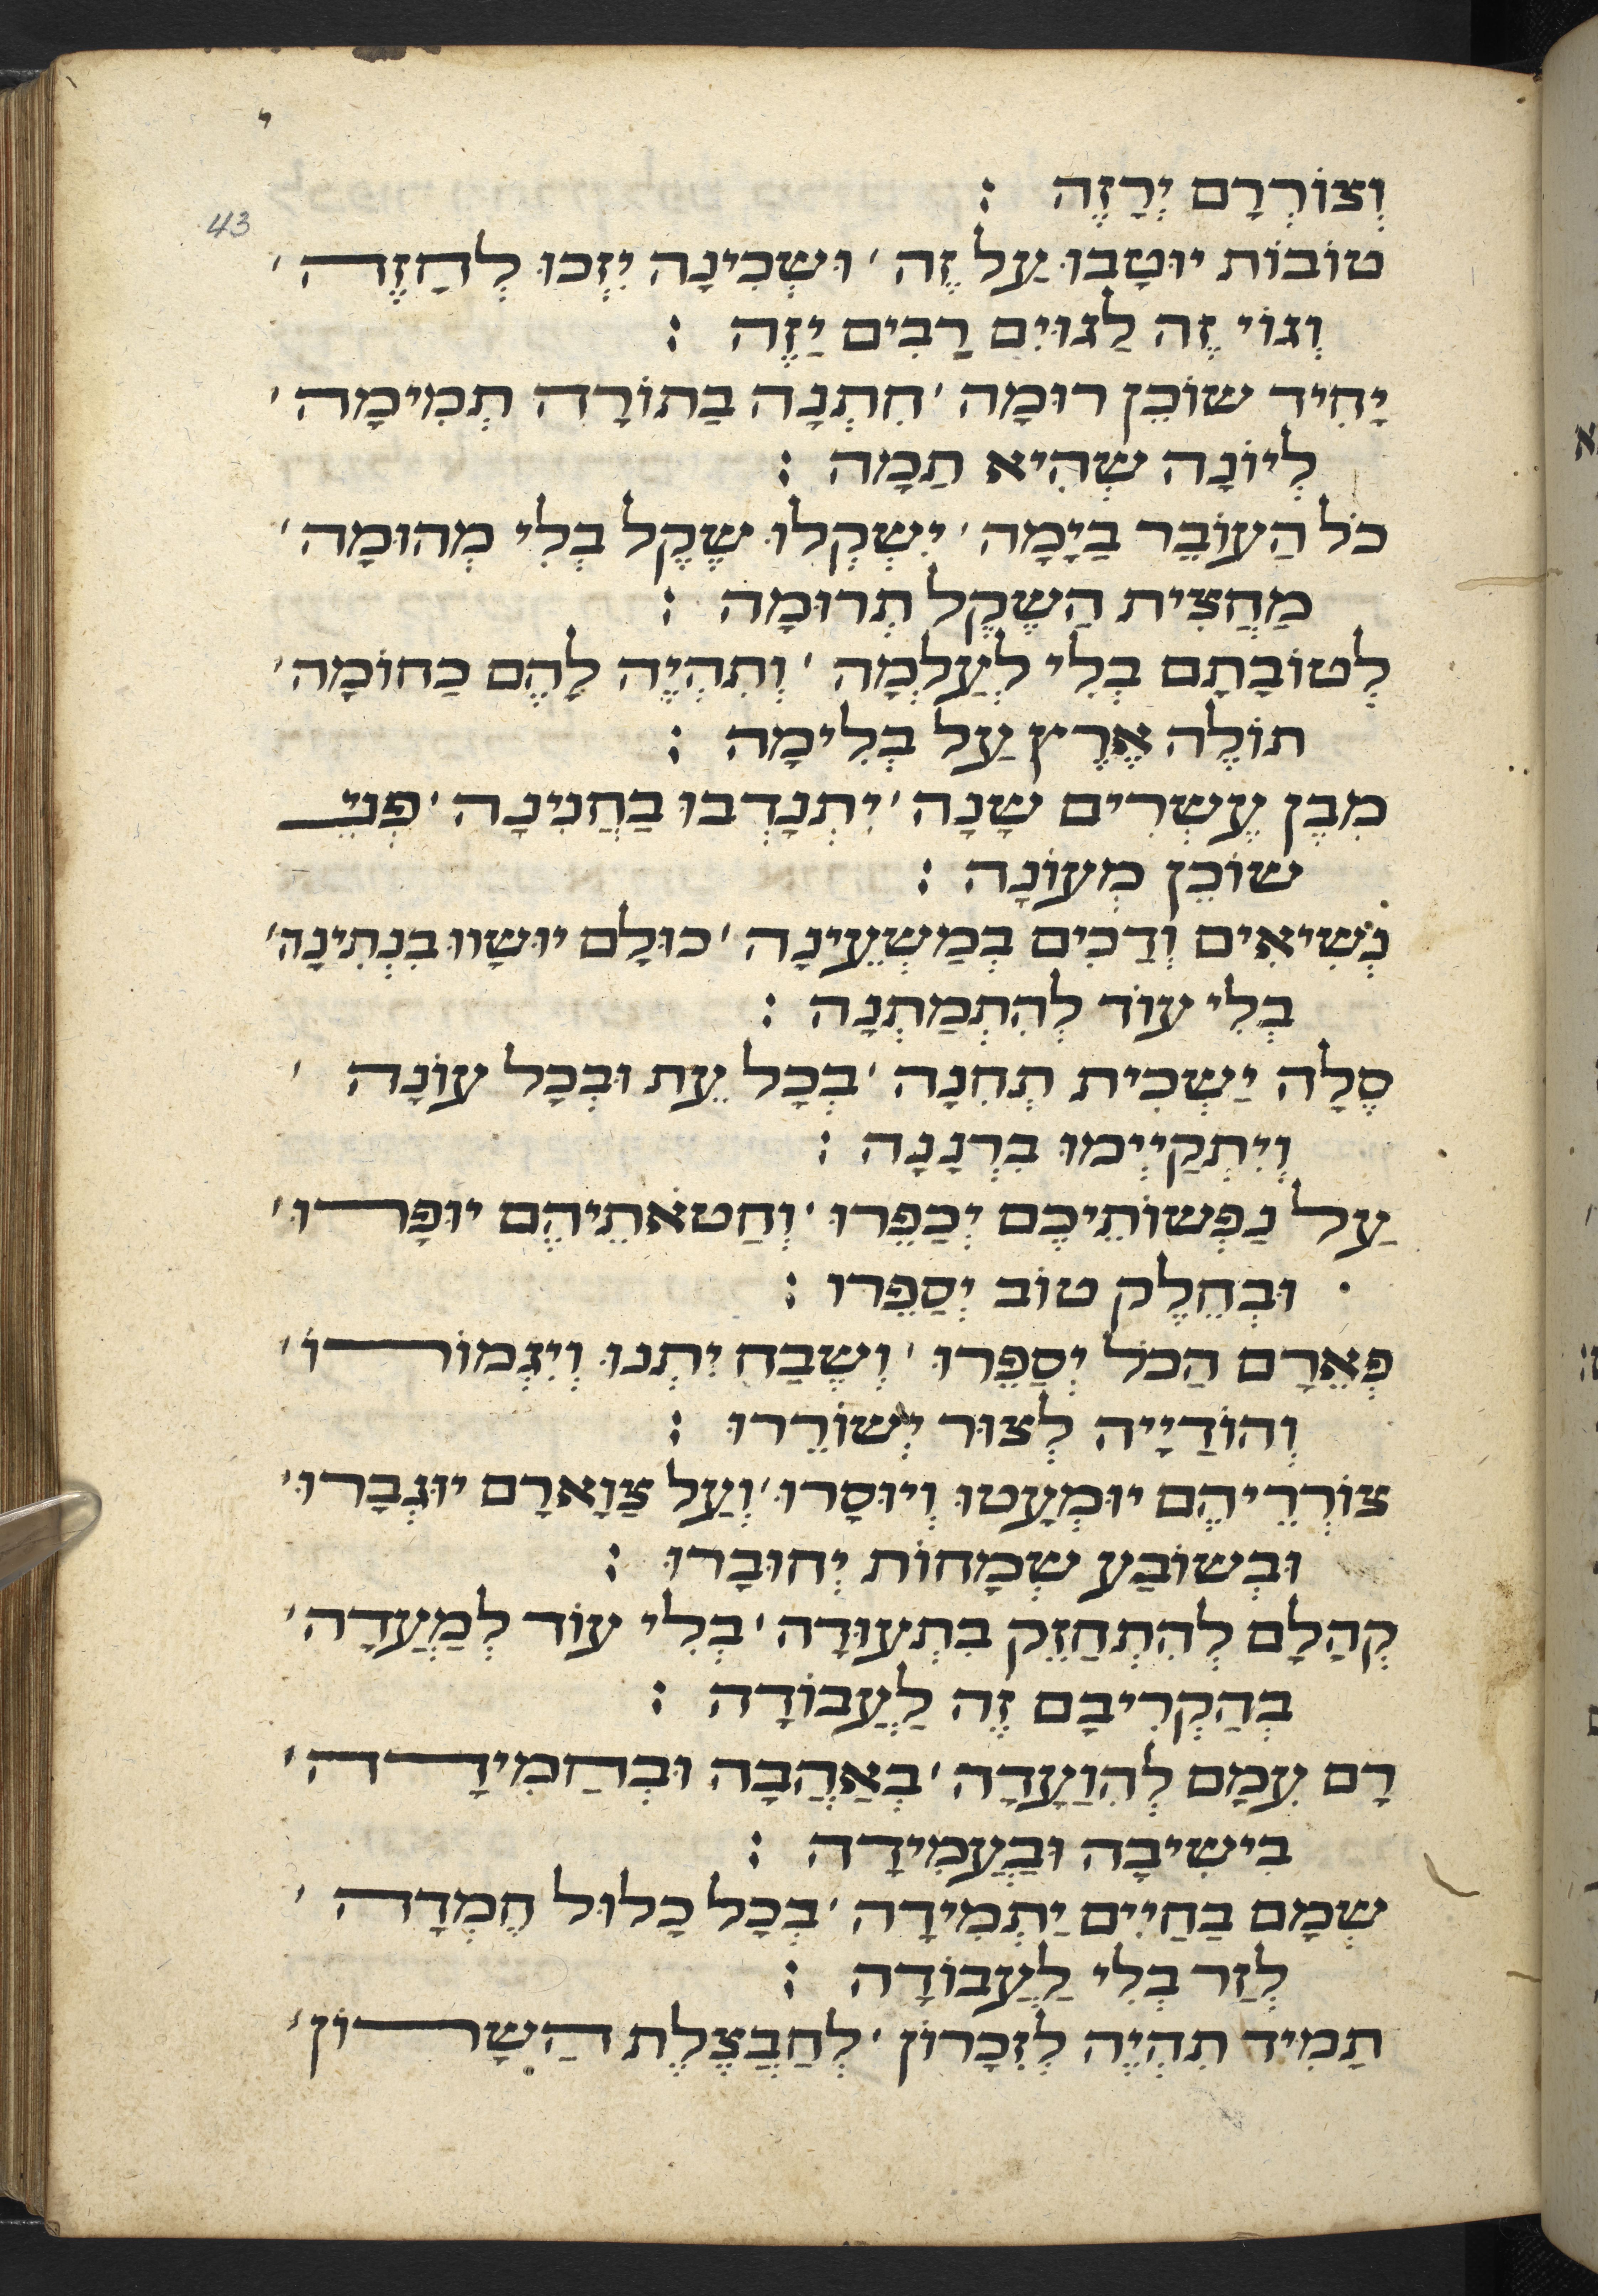 י
43
וְצוֹרְרָם יְרָזֶה :
טוֹבוֹת יוּטָבוּ עַל זֶה ׳ וּשְׁכִינָה יִזְכּוּ לְחַזֶה ׳
וְגוֹי זֶה לַגוּיִם רַבִים יַזֶה :
יָחִיד שׁוֹכֵן רוּמָה ׳ חִתְנָה בַתוֹרָה תְמִימָה ׳
לְיוֹנָה שֶׁהִיא תַמָה :
כֹל הַעוֹבֵר בַיָמָה ׳ יִשְׁקְלוּ שֶׁקֶל בְלִי מְהוּמָה ׳
מַחֲצִית הַשֶׁקֶל תְרוּמָה :
לְטוֹבָתָם בְלִי לְעַלְמָה ׳ וְתִהְיֶה לָהֶם כַחוֹמָה ׳
תוֹלֶה אֶרֶץ עַל בְלִימָה :
מִבֶן עֶשְׂרִים שָׁנָה ׳ יִתְנָדְבוּ בַחֲנִינָה ׳ פְנֵי
שׁוֹכֵן מְעוֹנָה :
נְשִׂיאִים וְדַכִּים בְמַשְׁעֵינָה ׳ כּוּלָם יוּשָׁווּ בִנְתִינָה ׳
בְלִי עוֹד לְהִתְמַתְנָה :
סֶלָה יַשְׁכִית תְחִנָה ׳ בְכָל עֵת וּבְכָל עוֹנָה ׳
וְיִתְקַיְימוּ בִרְנָנָה :
עַל נַפְשׁוֹתֵיכֶם יְכַפֵרוּ ׳ וְחַטֹאתֵיהֶם יוּפָרוּ ׳
וּבְחֵלֶק טוֹב יְסַפֵרוּ :
פְאֵרָם הַכֹל יְסַפֵרוּ ׳ וְשֶׁבַח יִתְנוּ וְיִגְמוֹרוּ ׳
וְהוֹדַיָיה לְצוּר יְשׁוֹרֵרוּ :
צוֹרְרֵיהֶם יוּמְעָטוּ וְיוּסָרוּ ׳ וְעַל צַוָארָם יוּגְבָרוּ ׳
וּבְשׂוֹבַע שְׂמָחוֹת יְחוּבָרוּ :
קְהָלָם לְהִתְחַזֵק בִתְעוּדָה ׳ בְלִי עוֹד לְמַעֲדָה ׳
בְהַקְרִיבָם זֶה לַעֲבוֹדָה :
רָם עִמָם לְהִוַעֲדָה ׳ בְאַהֲבָה וּבְחַמִידָה ׳
בִישִׁיבָה וּבַעֲמִידָה :
שְׁמָם בַחַיִים יַתְמִידָה ׳ בְכָל כָלוּל חֶמְדָה ׳
לְזַר בְלִי לַעֲבוֹדָה :
תַמִיד תִהְיֶה לְזִכָרוֹן ׳ לְחַבֲצֶלֶת הַשָׁרוֹן ׳